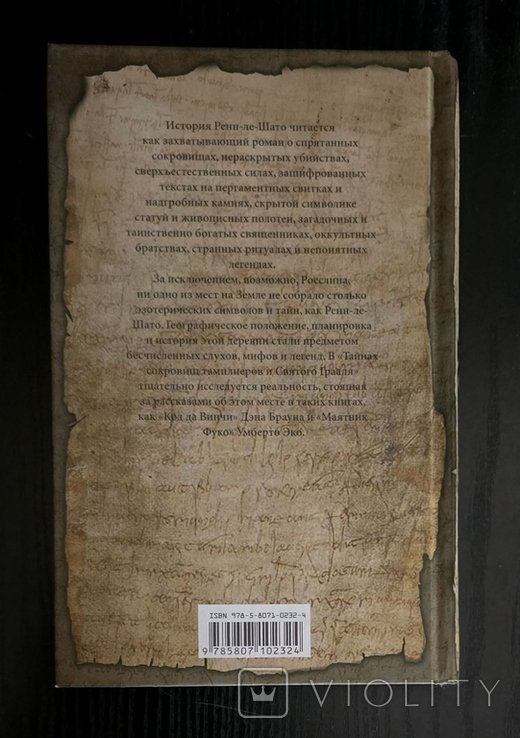 История Ренн-ле-Шато читается
как захватывающий роман о спрятанных
сокровищах, нераскрытых убийствах,
сверхъестественных силах, зашифрованных
текстах на пергаментных свитках и
надгробных камнях, скрытой символике
статуй и живописных полотен, загадочных и
таинственно богатых священниках, оккультных
братствах, странных ритуалах и непонятных
легендах.
За исключением, возможно, Росслина,
ни одно из мест на Земле не собрало столько
эзотерических символов и тайн, как Ренн-ле-
Шато. Географическое положение, планировка
и история этой деревни стали предметом
бесчисленных слухов, мифов и легенд. В «Тайнах
сокровищ тамплиеров и Святого Грааля»
тщательно исследуется реальность, стоящая
за рассказами об этом месте в таких книгах,
как «Код да Винчи» Дэна Брауна и «Маятник
Фуко» Умберто Эко.
ISBN 978-5-8071-0232-4
9 785807 102324
VIOLITY